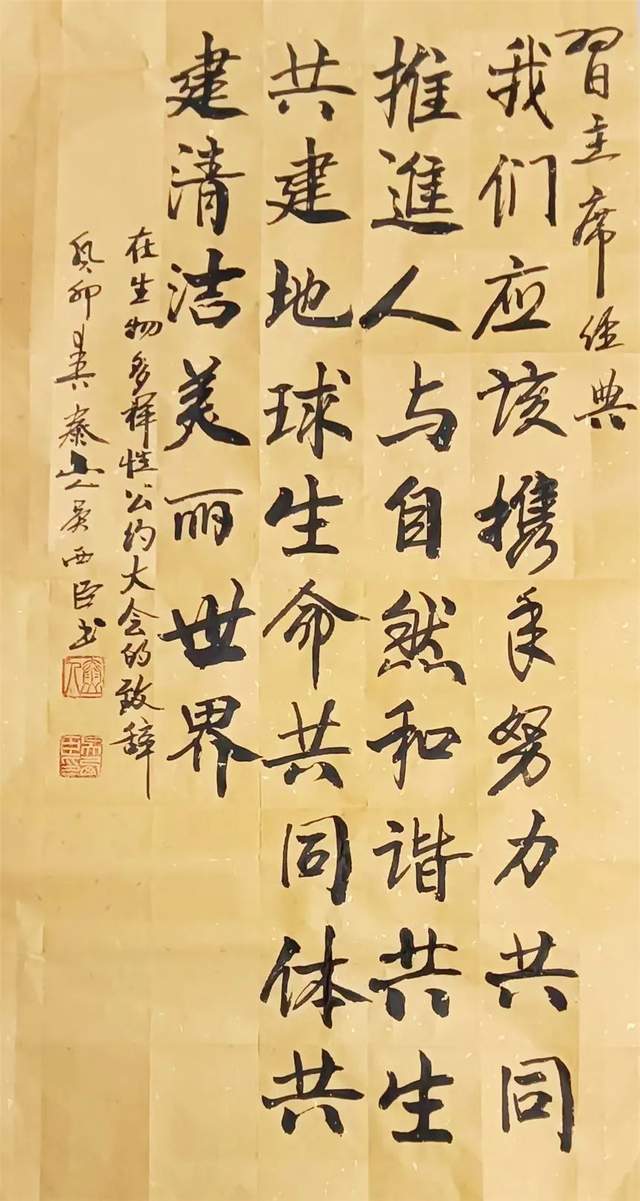 習主席经典
我们应该携手努力共同
推進人与自然和谐共生
共建地球生命共同体共
建清洁美丽世界
在生物多样性公约大会的致辞
癸卯春秦山人吴西臣书